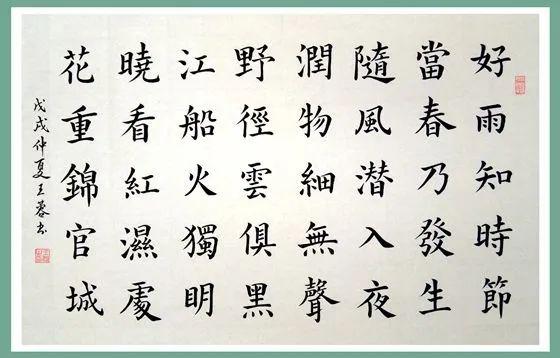 好雨知時節
當春乃發生
隨風潜入夜
潤物細無聲
野徑雲俱黑
江船火獨明
曉看紅濕處
花重錦官城
戊戌仲夏王蓉书